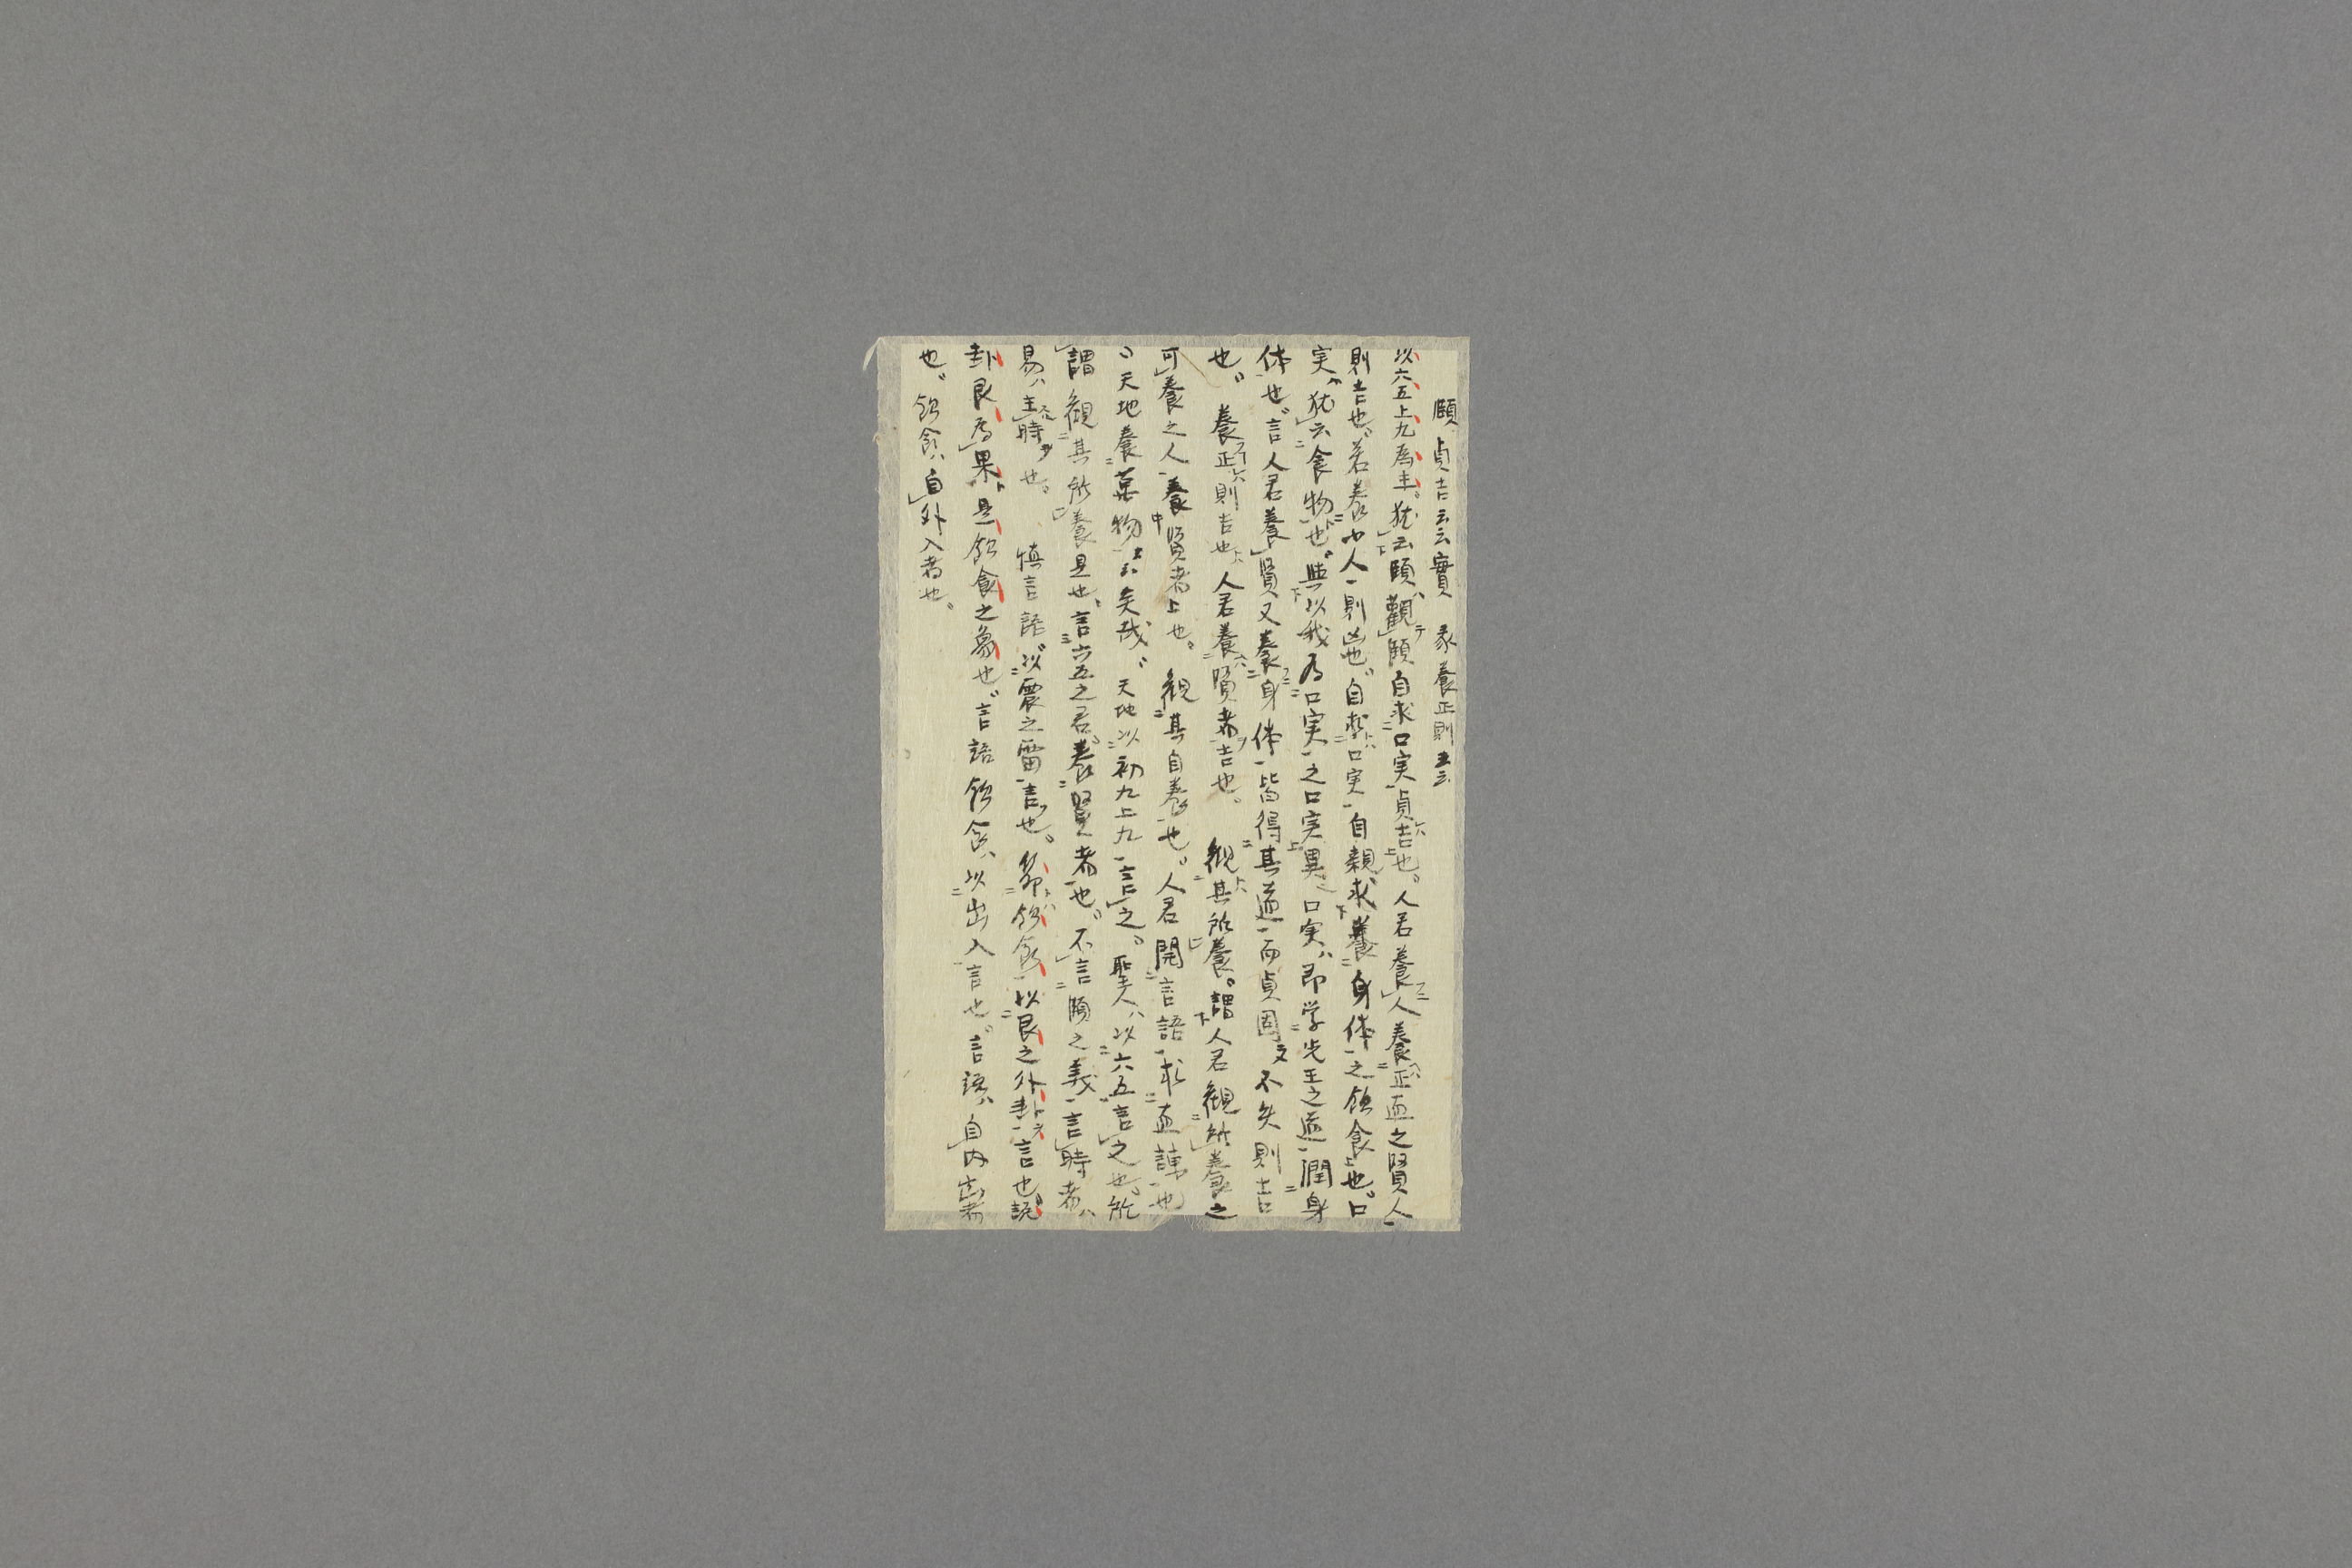 頤 貞吉云云實 彖養正則云云
以六五上九為主。犹云頤、觀頤自求口実貞吉也。人君養人養正直之賢人
則吉也。若養小人則凶也。自求口実自親求養身体之飲食也。口
実、犹云食物也。与以我為口実之口実異。口実、即学先王之道潤身
体也。言人君養賢又養身体皆得其道而貞固不失則吉
也。 養正則吉也、人君養賢者吉也。 観其所養。謂人君観所養之
可養之人養賢者上也。 観其自養也。人君開言語求直諌也
、天地養万物云云矣哉。天地以初九上九言之。聖人、以六五言之也。所
謂観其所養是也。言六五之君養賢者也。不言頤之義言時者、
易、主時也。 慎言語、以震之雷言也。節飲食以艮之外卦言也。説
卦艮為果是飲食之象也。言語飲食、以出入言也。言語、自内出者
也。飲食、自外入者也。